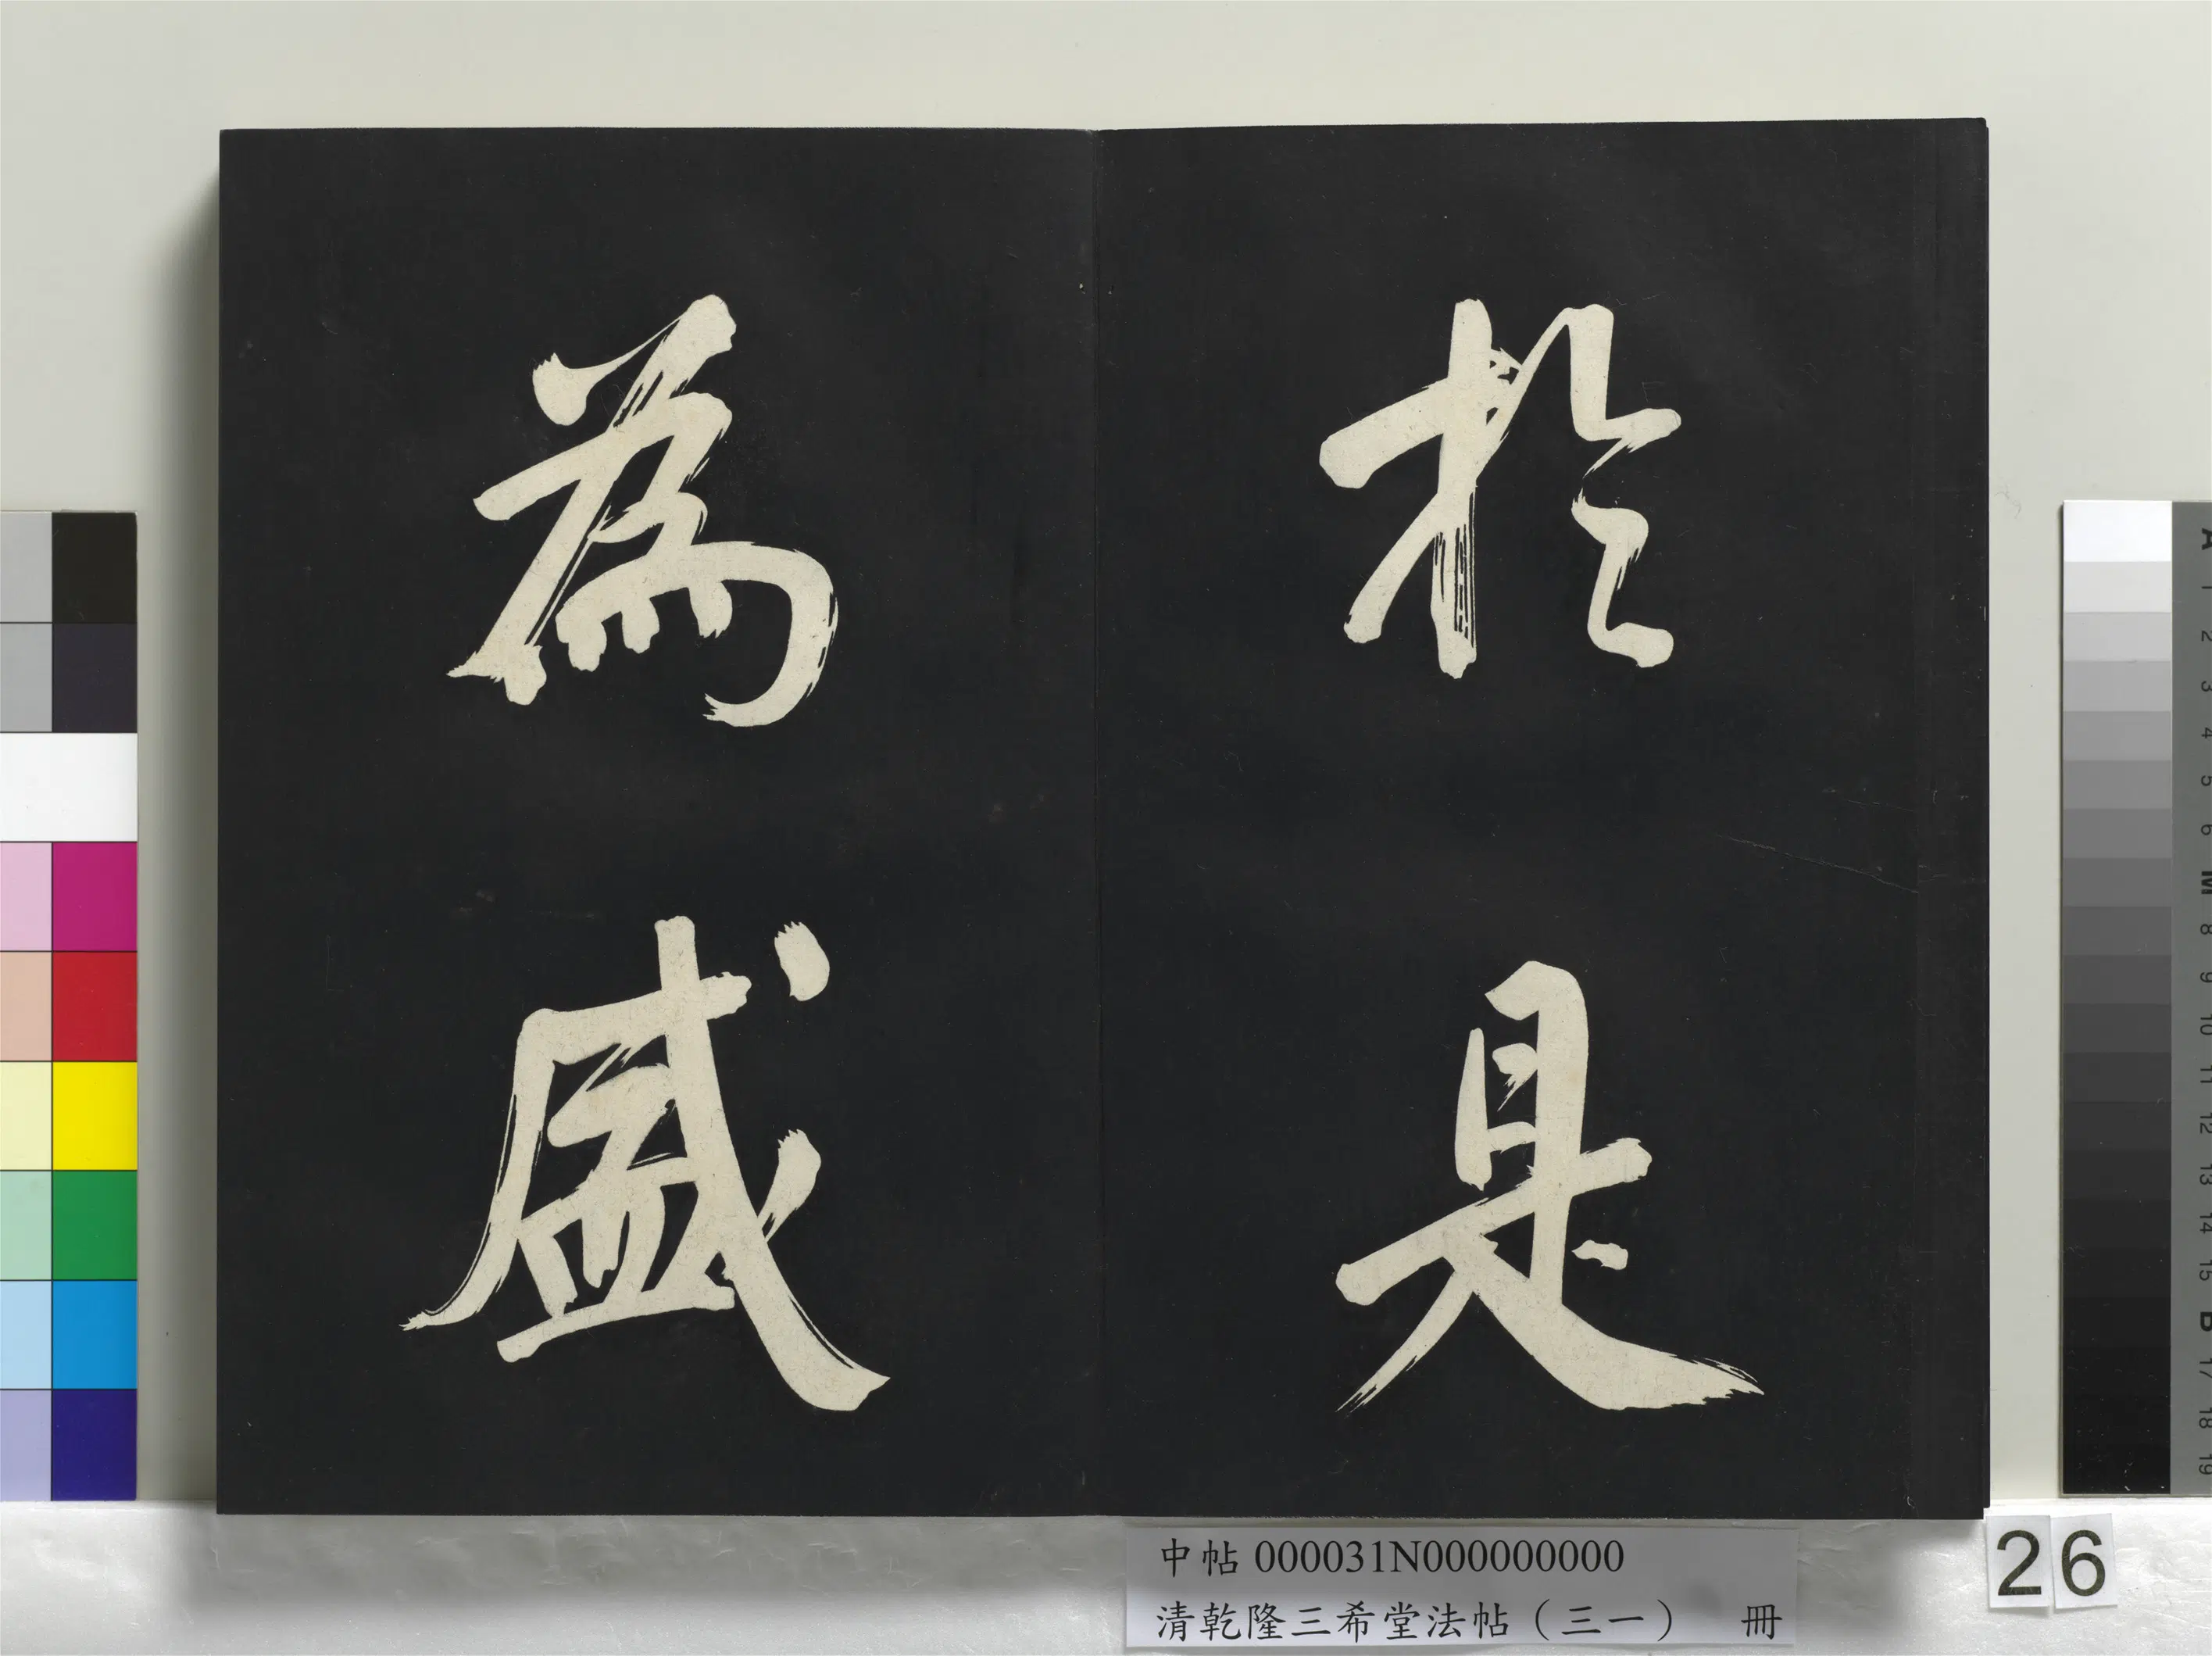 於是
為盛
中帖000031N000000000
清乾隆三希堂法帖（三一） 冊
26
A
1
2
3
4
5
6
M
8
9
10
11
12
13
14
15
B
17
18
19